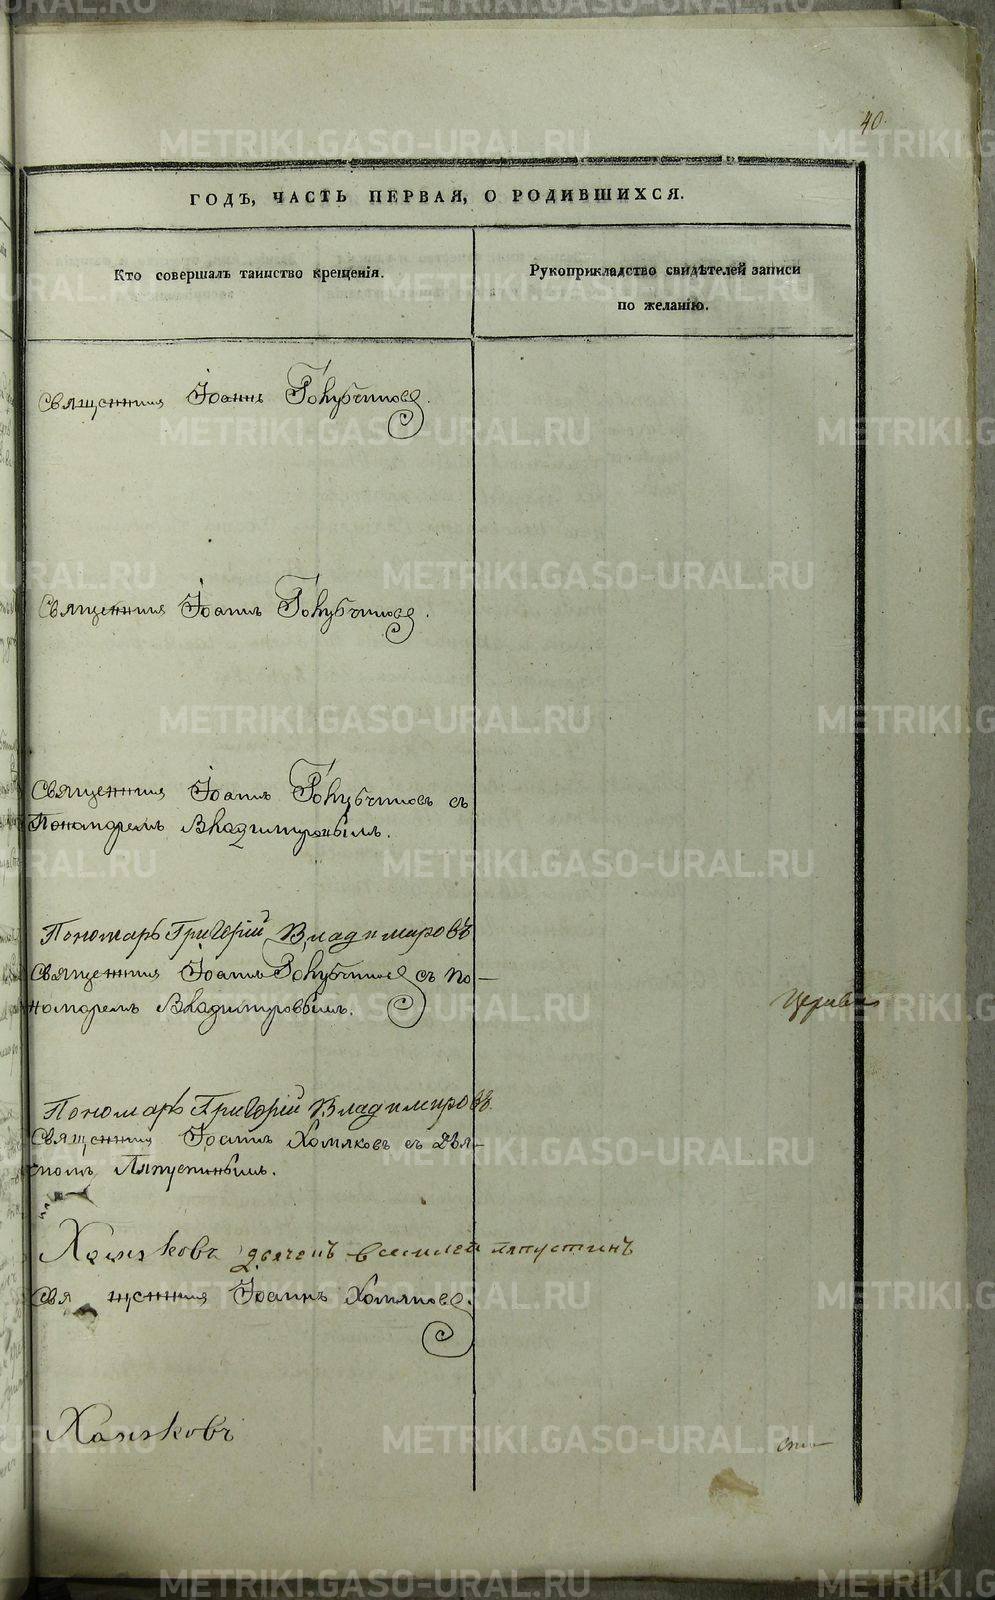 40.
ГОДЪ, ЧАСТЬ ПЕРВАЯ, О РОДИВШИХСЯ.
Кто совершалъ таинство крещенія.
Рукоприкладство свидѣтелей записи
по желанію.
Священникъ Іоаннъ Голубчиковъ.
Священникъ Іоаннъ Голубчиковъ.
Священникъ Іоаннъ Голубчиковъ съ
Пономаремъ Владимировымъ.
Пономарь Григорій Владимировъ
Священникъ Іоаннъ Голубчиковъ съ по-
номаремъ Владимировымъ.
Церкви
Пономарь Григорій Владимировъ.
Священникъ Іоаннъ Хомяковъ съ Дья-
комъ Ляпустинымъ.
Хомяковъ дьячекъ Василей Ляпустинъ
Свя щенникъ Іоаннъ Хомяковъ.
Хомяковъ
METRIKI.GASO-URAL.RU